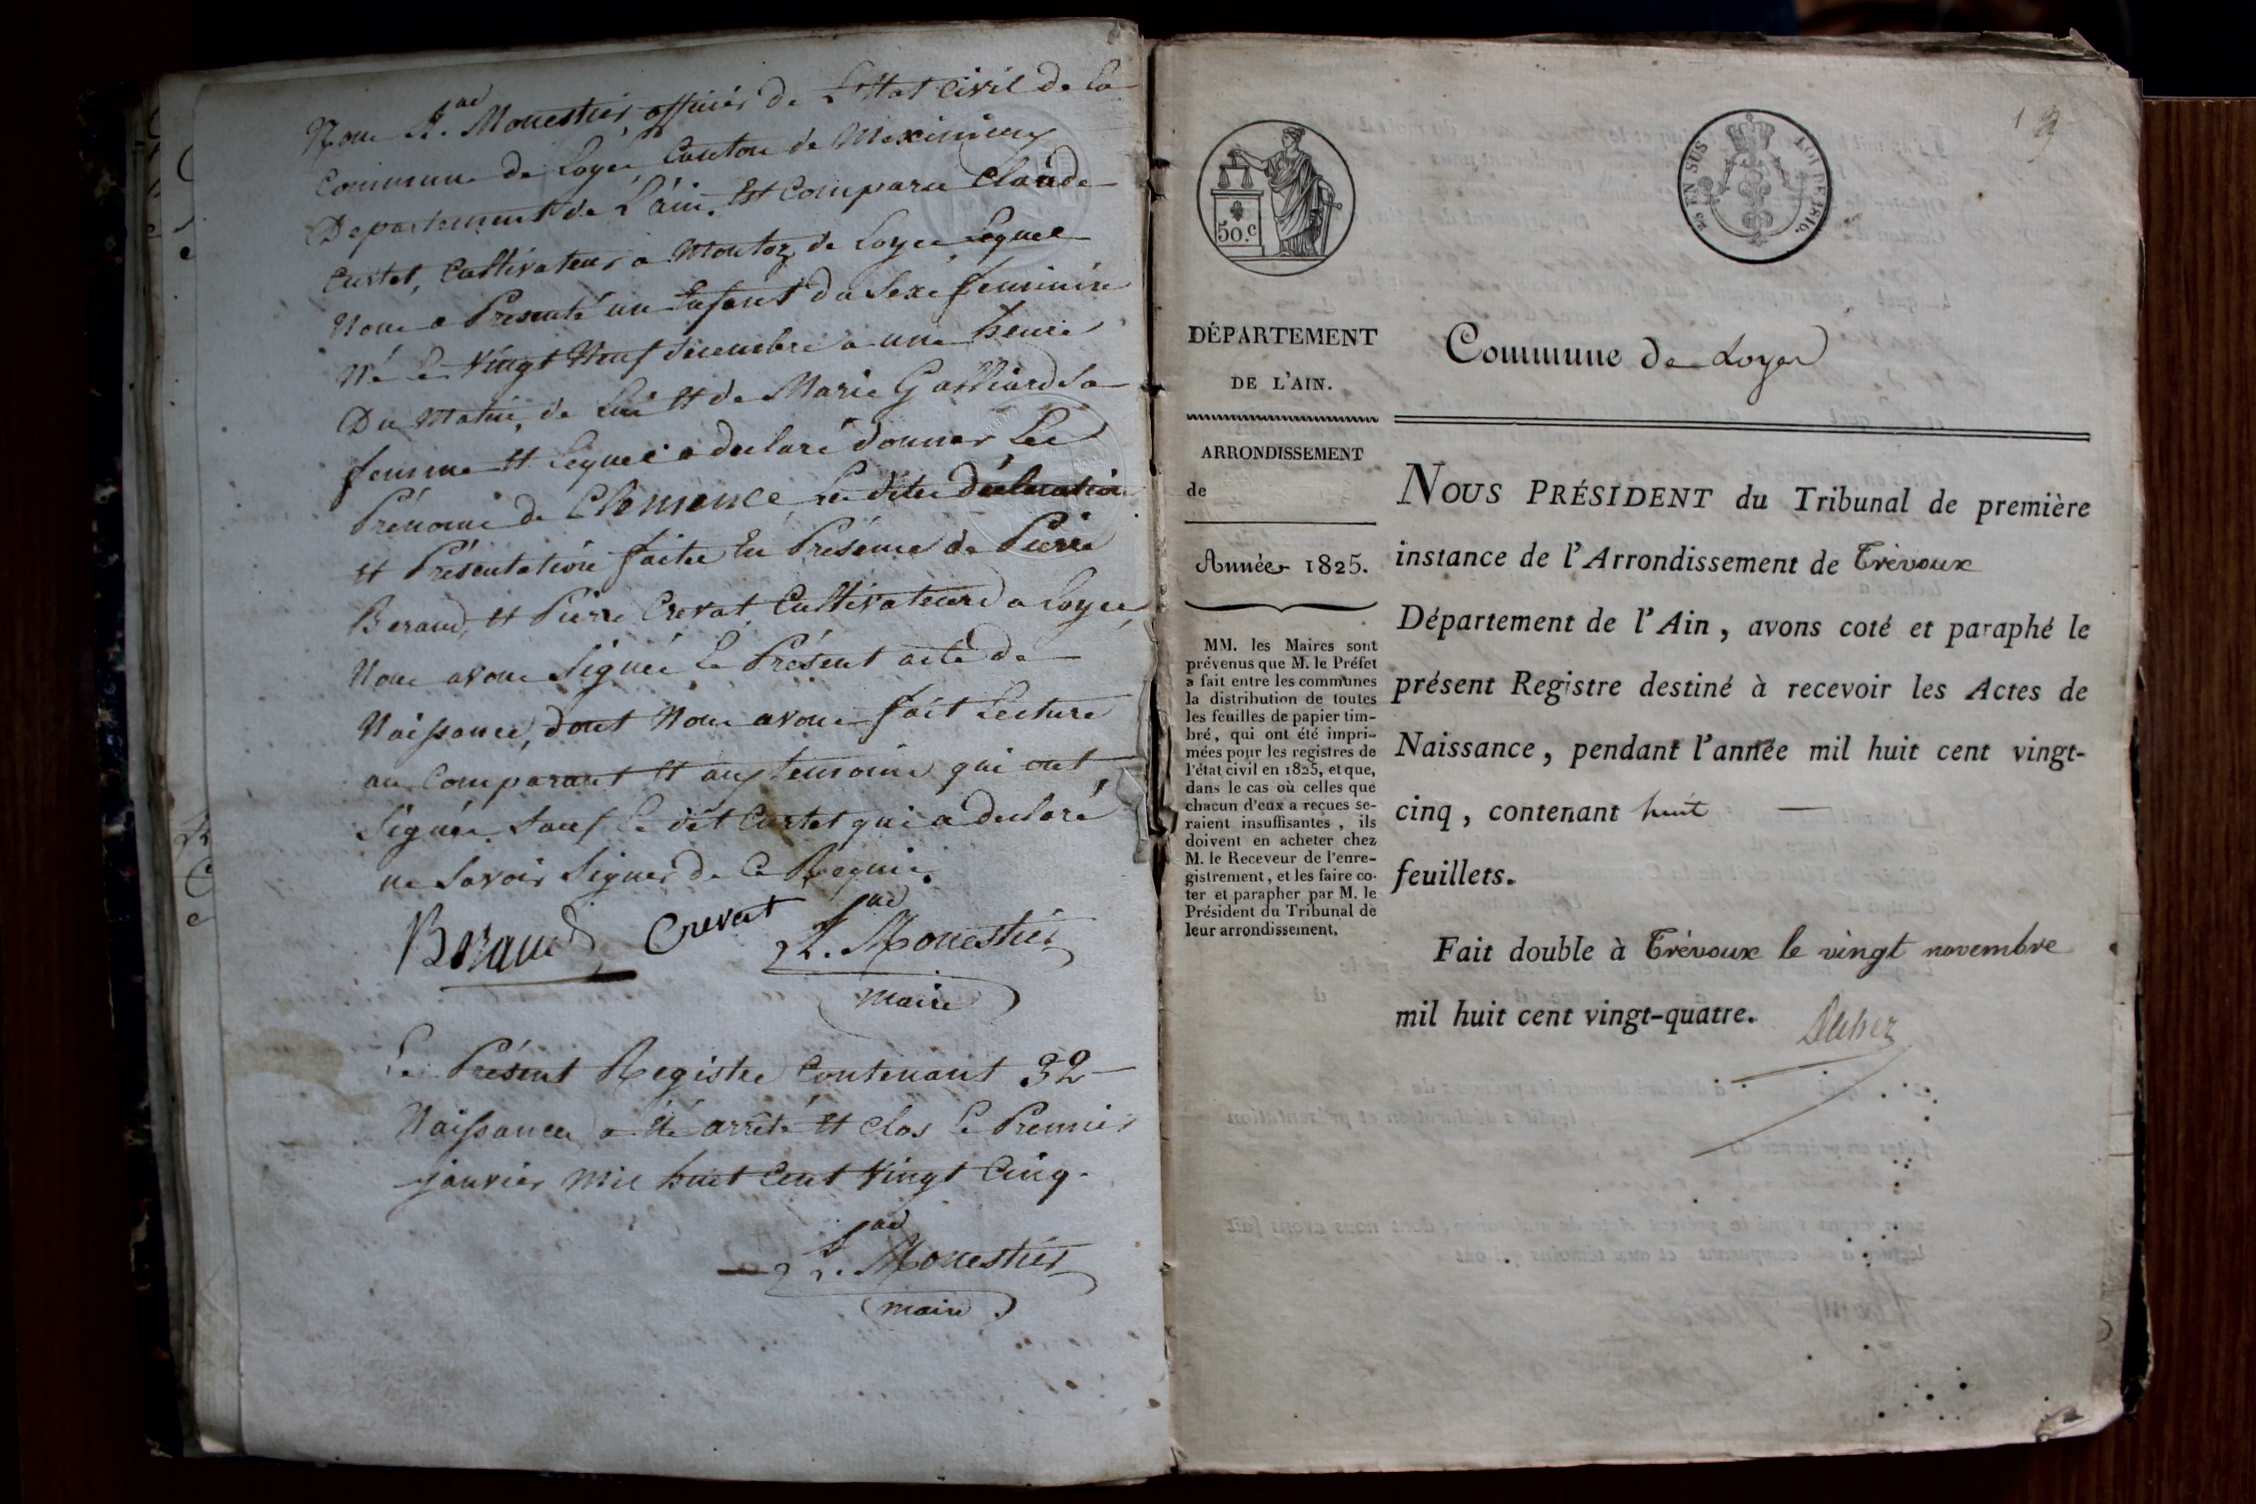 Nous Lt. Monestier officier de L'Etat Civil de La
Commune de Loyes, Canton de Meximieux
Departement de L'ain. Est Comparu Claude
Curtet, Cultivateur a Montoz de Loyes Lequel
Nous a Présenté un Enfant du Sexe feminin
Né le Vingt Neuf décembre a une heure
Du Matin, de Lui Et de Marie Galliard Sa
femme Et Lequel a declaré donner Les
Prénoms de Clémence Les dites déclaration
Et Présentation faites En Présence de Pierre
Beraud, Et Pierre Crevat, Cultivateurs a Loyes,
Nous avons Signés Le Présent acte de
Naissance, dont Nous avons fait Lecture
au Comparant Et aux temoins qui ont
Signés Sauf Le dit Curtet qui a declaré
ne Savoir Signer de Ce Requis.
Beraud Crevat Lt. Monestier
maire
Le Présent Registre Contenant 32
Naissances a été arrêté Et Clos Le Premier
janvier Mil huit Cent Vingt Cinq.
Lt. Monestier
maire
50.c
EN SUS
LOI DE 1816.
DÉPARTEMENT
DE L'AIN.
ARRONDISSEMENT
de
Année 1825.
MM. les Maires sont
prévenus que M. le Préfet
a fait entre les communes
la distribution de toutes
les feuilles de papier tim-
bré, qui ont été impri-
mées pour les registres de
l'état civil en 1825, et que,
dans le cas où celles que
chacun d'eux a reçues se-
raient insuffisantes, ils
doivent en acheter chez
M. le Receveur de l'enre-
gistrement, et les faire co-
ter et parapher par M. le
Président du Tribunal de
leur arrondissement.
Commune de Loyes
NOUS PRÉSIDENT du Tribunal de première
instance de l'Arrondissement de Trévoux
Département de l'Ain, avons coté et paraphé le
présent Registre destiné à recevoir les Actes de
Naissance, pendant l'année mil huit cent vingt-
cinq, contenant huit
feuillets.
Fait double à Trévoux le vingt novembre
mil huit cent vingt-quatre.